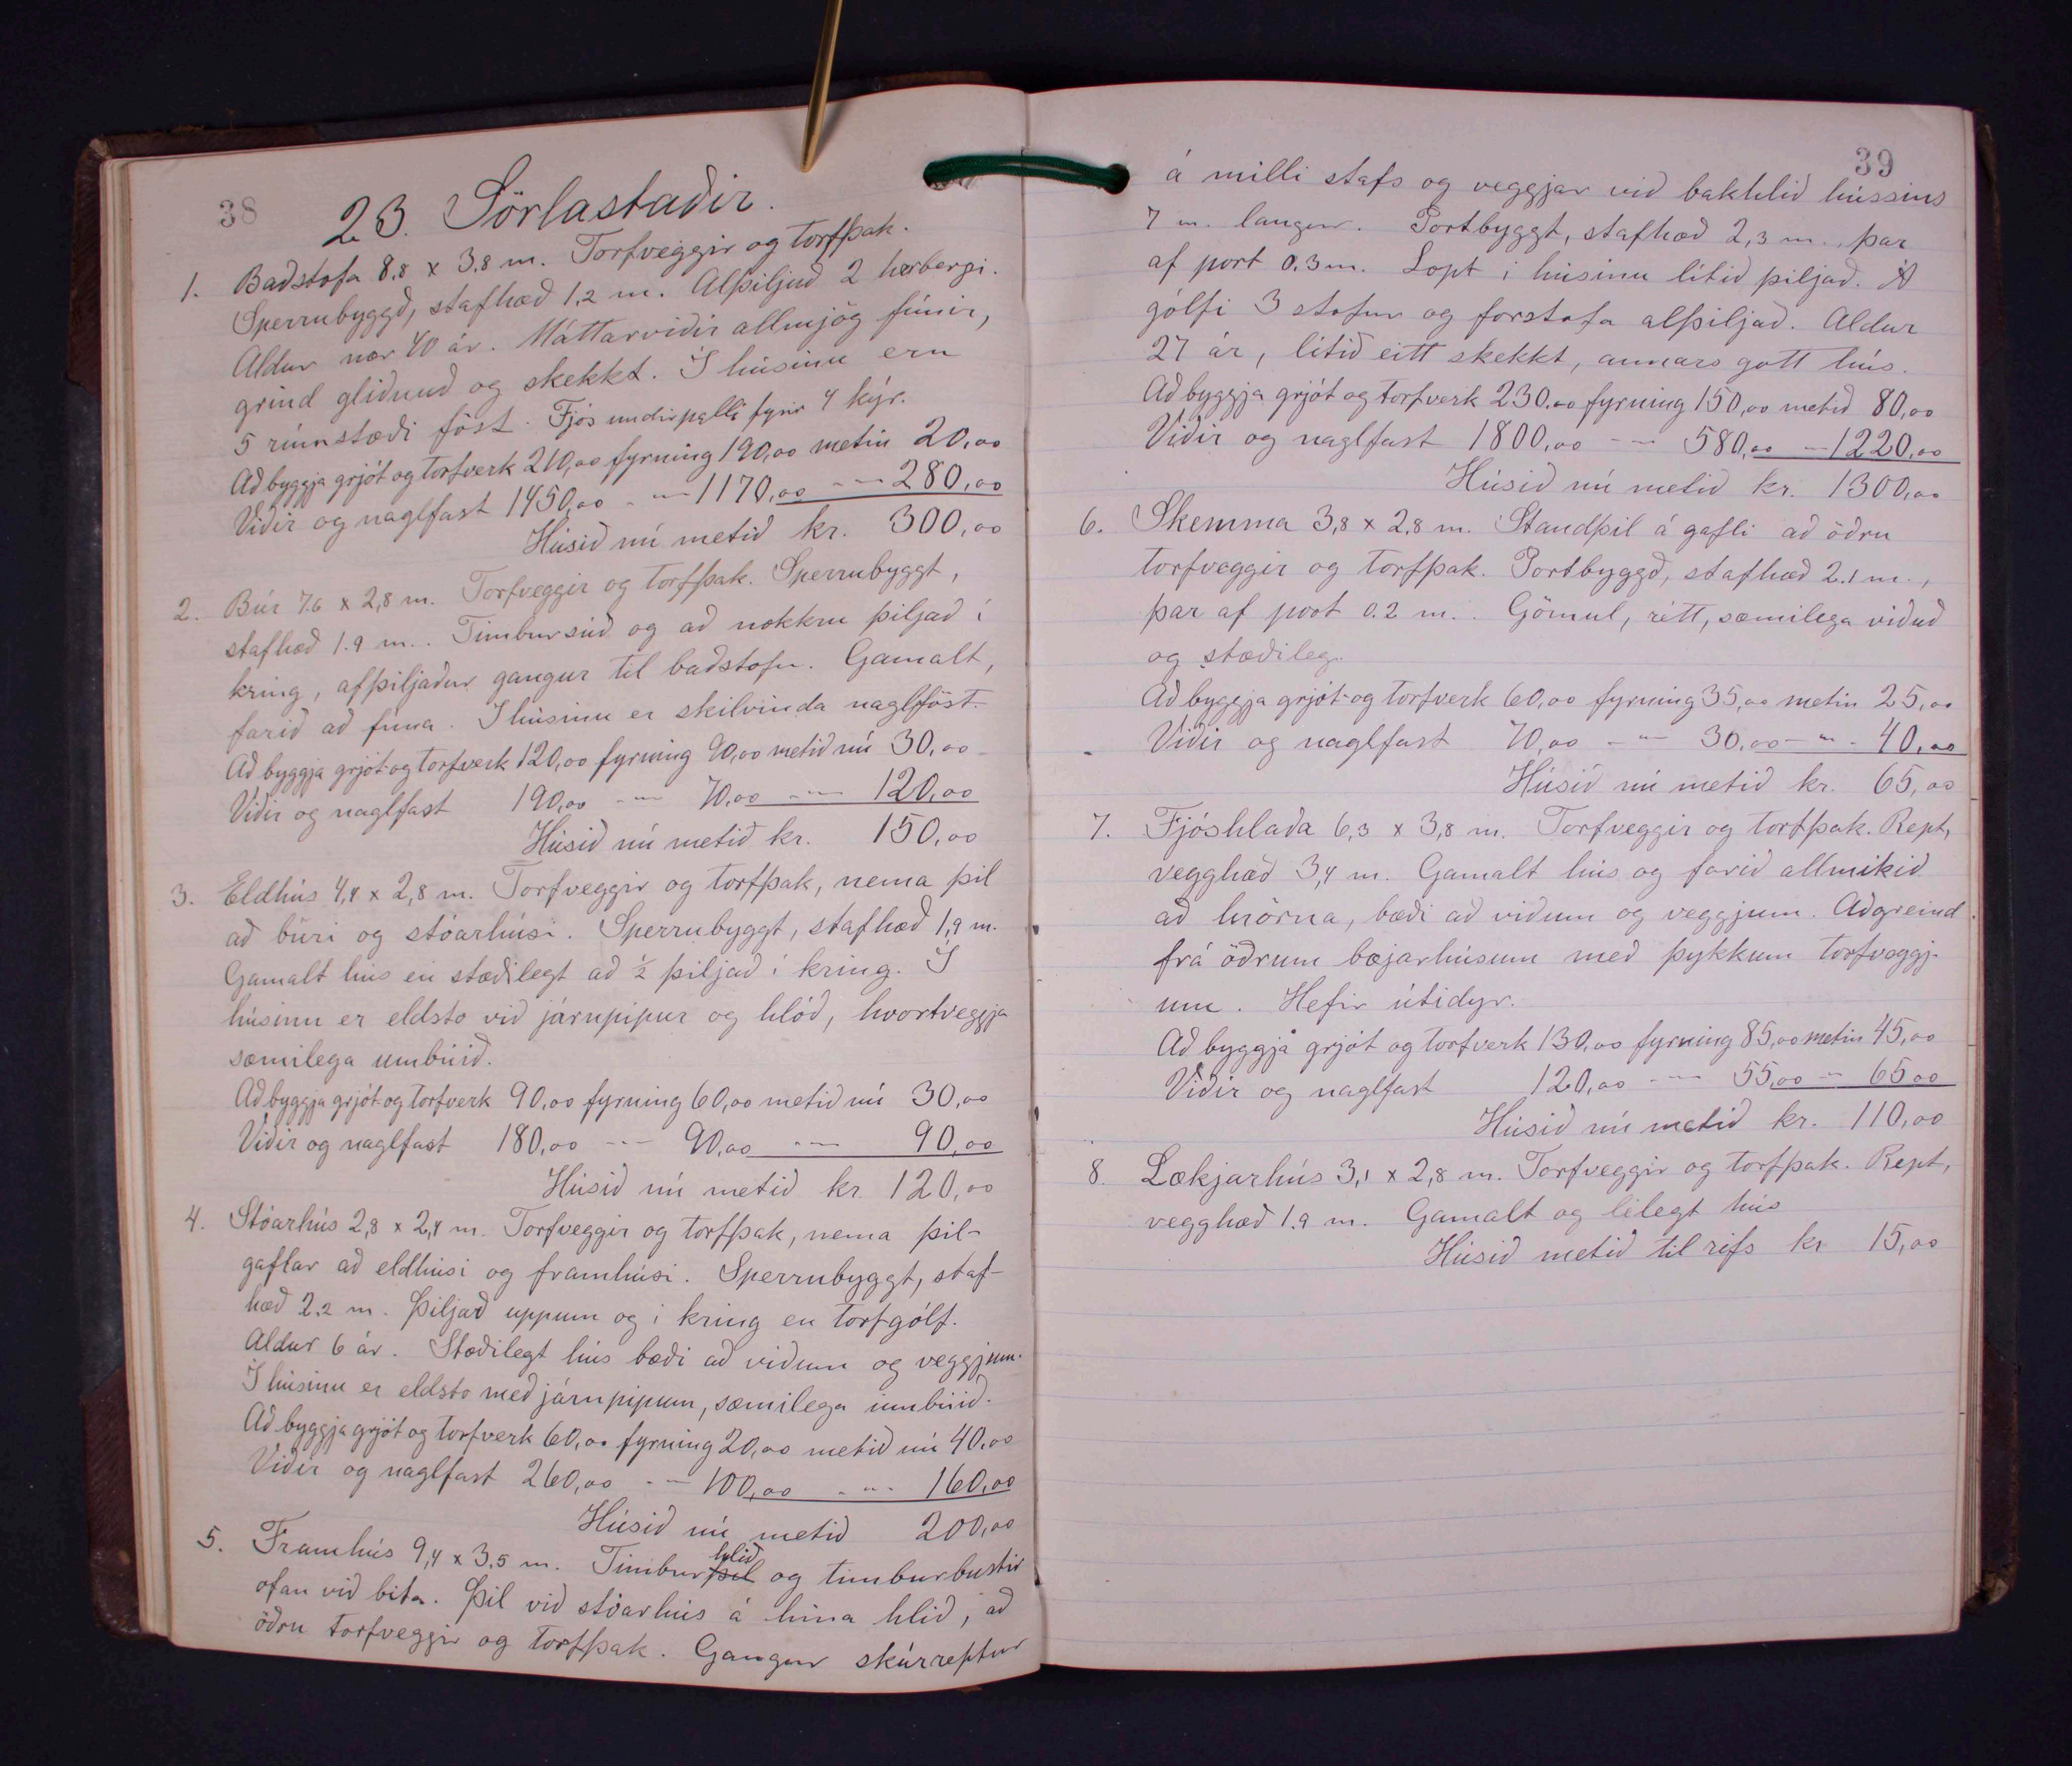 38
23. Sörlastaðir.
1. Baðstofa 8.8 x 3.8 m. Torfveggir og torfþak.
Sperrubyggð, stafhæð 1.2 m. Alþiljuð 2 herbergi.
Aldur nær 40 ár. Máttarviðir allmjög fúnir,
grind gliðnuð og skekkt. Í húsinu eru
5 rúmstæði föst. Fjós undir palli fyrir 4 kýr.
Að byggja grjót og torfverk 210,00 fyrning 190,00 metin 20,00
Viðir og naglfast 1450,00 - " - 1170,00 - " - 280,00
Húsið nú metið kr. 300,00
2. Búr 7.6 x 2,8 m. Torfveggir og torfþak. Sperrubyggt,
stafhæð 1.9 m.. Timbursúð og að nokkru þiljað í
kring, afþiljaður gangur til baðstofu. Gamalt,
farið að fúna. Í húsinu er skilvinda naglföst.
Að byggja grjót-og torfverk 120,00 fyrning 90,00 metið nú 30,00
Viðir og naglfast 190,00 - " - 70,00 - " - 120,00
Húsið nú metið kr. 150,00
3. Eldhús 4,4 x 2,8 m. Torfveggir og torfþak, nema þil
að búri og stóarhúsi. Sperrubyggt, stafhæð 1,9 m.
Gamalt hús en stæðilegt að ½ þiljað í kring. Í
húsinu er eldsto við járnpípur og hlóð, hvortveggja
sæmilega umbúið.
Að byggja grjót-og torfverk 90,00 fyrning 60,00 metið nú 30,00
Viðir og naglfast 180,00 - " - 90,00 - " - 90,00
Húsið nú metið kr 120,00
4. Stóarhús 2,8 x 2,4 m. Torfveggir og torfþak, nema þil-
gaflar að eldhúsi og framhúsi. Sperrubyggt, staf-
hæð 2.2 m. Þiljað uppum og í kring en torfgólf.
Aldur 6 ár. Stæðilegt hús bæði að viðum og veggjum.
Í húsinu er eldsto með járnpípum, sæmilega umbúið.
Að byggja grjót og torfverk 60,00 fyrning 20,00 metið nú 40,00
Viðir og naglfast 260,00 - " - 100,00 - " - 160,00
Húsið nú metið 200,00
5. Framhús 9,4 x 3.5 m. Timburþil hlið og timburbustir
ofan við bita. Þil við stóarhús á hina hlið, að
öðru torfveggir og torfþak. Gangur skúrreptur
39
á milli stafs og veggjar við bakhlið hússins
7 m. langur. Portbyggt, stafhæð 2,3 m., þar
af port 0.3 m. Lopt í húsinu lítið þiljað. Á
gólfi 3 stofur og forstofa alþiljað. Aldur
27 ár, lítið eitt skekkt, annars gott hús.
Að byggja grjót og torfverk 230.00 fyrning 150,00 metið 80,00
Viðir og naglfast 1800,00 - " - 580,00 - 1220,00
Húsið nú metið kr. 1300,00
6. Skemma 3,8 x 2.8 m. Standþil á gafli að öðru
torfveggir og torfþak. Portbyggð, stafhæð 2.1 m.,
þar af port 0.2 m.. Gömul, rétt, sæmilega viðuð
og stæðileg.
Að byggja grjót-og torfverk 60,00 fyrning 35,00 metin 25,00
Viðir og naglfast 70,00 - " - 30,00 - " - 40,00
Húsið nú metið kr. 65,00
7. Fjóshlaða 6,3 x 3,8 m. Torfveggir og torfþak. Rept,
vegghæð 3,4 m. Gamalt hús og farið allmikið
að hrörna, bæði að viðum og veggjum. Aðgreind
frá öðrum bæjarhúsum með þykkum torfveggj-
um. Hefir útidyr.
Að byggja grjót og torfverk 130,00 fyrning 85,00 metin 45,00
Viðir og naglfast 120,00 - " - 55,00 - " - 65 00
Húsið nú metið kr. 110,00
8. Lækjarhús 3,1 x 2,8 m. Torfveggir og torfþak. Rept,
vegghæð 1.9 m. Gamalt og lélegt hús
Húsið metið til rifs kr 15,00